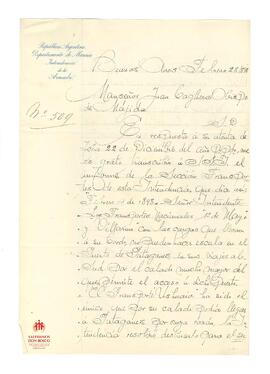 República Argentina
Departamento de Marina
Intendencia
de la
Armada
Buenos Aires Febrero 28
Monseñor Juan Cagliero Obispo
de Májida
Nº 509
En respuesta á su atenta de
fecha 22 de Diciembre del año
me es grato transcribir á
informe de la Sección Transpor
tes de esta Intendencia que dice
Febrero de 1898 Señor Intendente
Los Transportes Nacionales 1º de Mayo
y Villarino con las cargas que
á su bordo no pueden hacer escala en el
Puerto de Patagones en sus viajes al
Sud por el calado mucho mayor del
que permite el acceso á dicho puerto
El Transporte Ushuaia ha sido el
único que por su calado podia llegar
á Patagones por cuya razón la In
tendencia resolvió
SALESIANOS
DON BOSCO